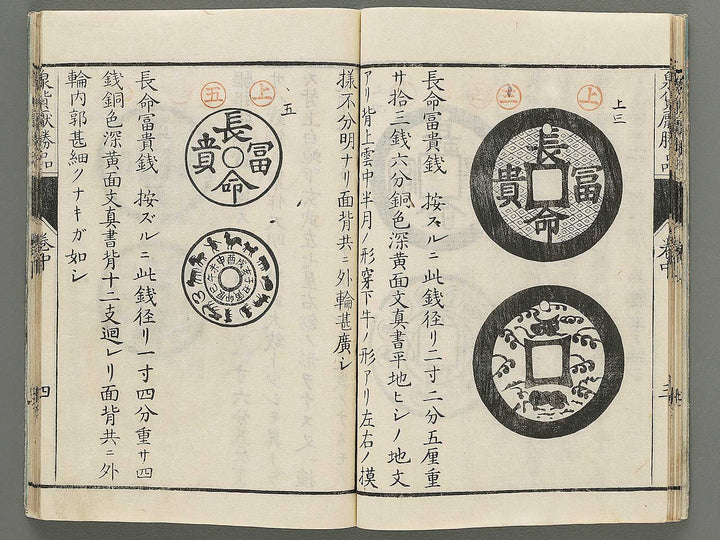 上三
上
三
長命富貴
長命冨貴銭 按スルニ此銭径リ二寸二分五厘重
サ拾三銭六分銅色深黄面文真書平地ヒシノ地文
アリ背上雲中半月ノ形穿下牛ノ形アリ左右ノ摸
様不分明ナリ面背共ニ外輪甚廣シ
五
上
五
長命富貴
子丑寅卯辰巳午未申酉戌亥
長命冨貴銭 按ズルニ此銭径リ一寸四分重サ四
銭銅色深黄面文真書背十二支廻レリ面背共ニ外
輪内郭甚細クナキガ如シ
卷中
三
卷中
四